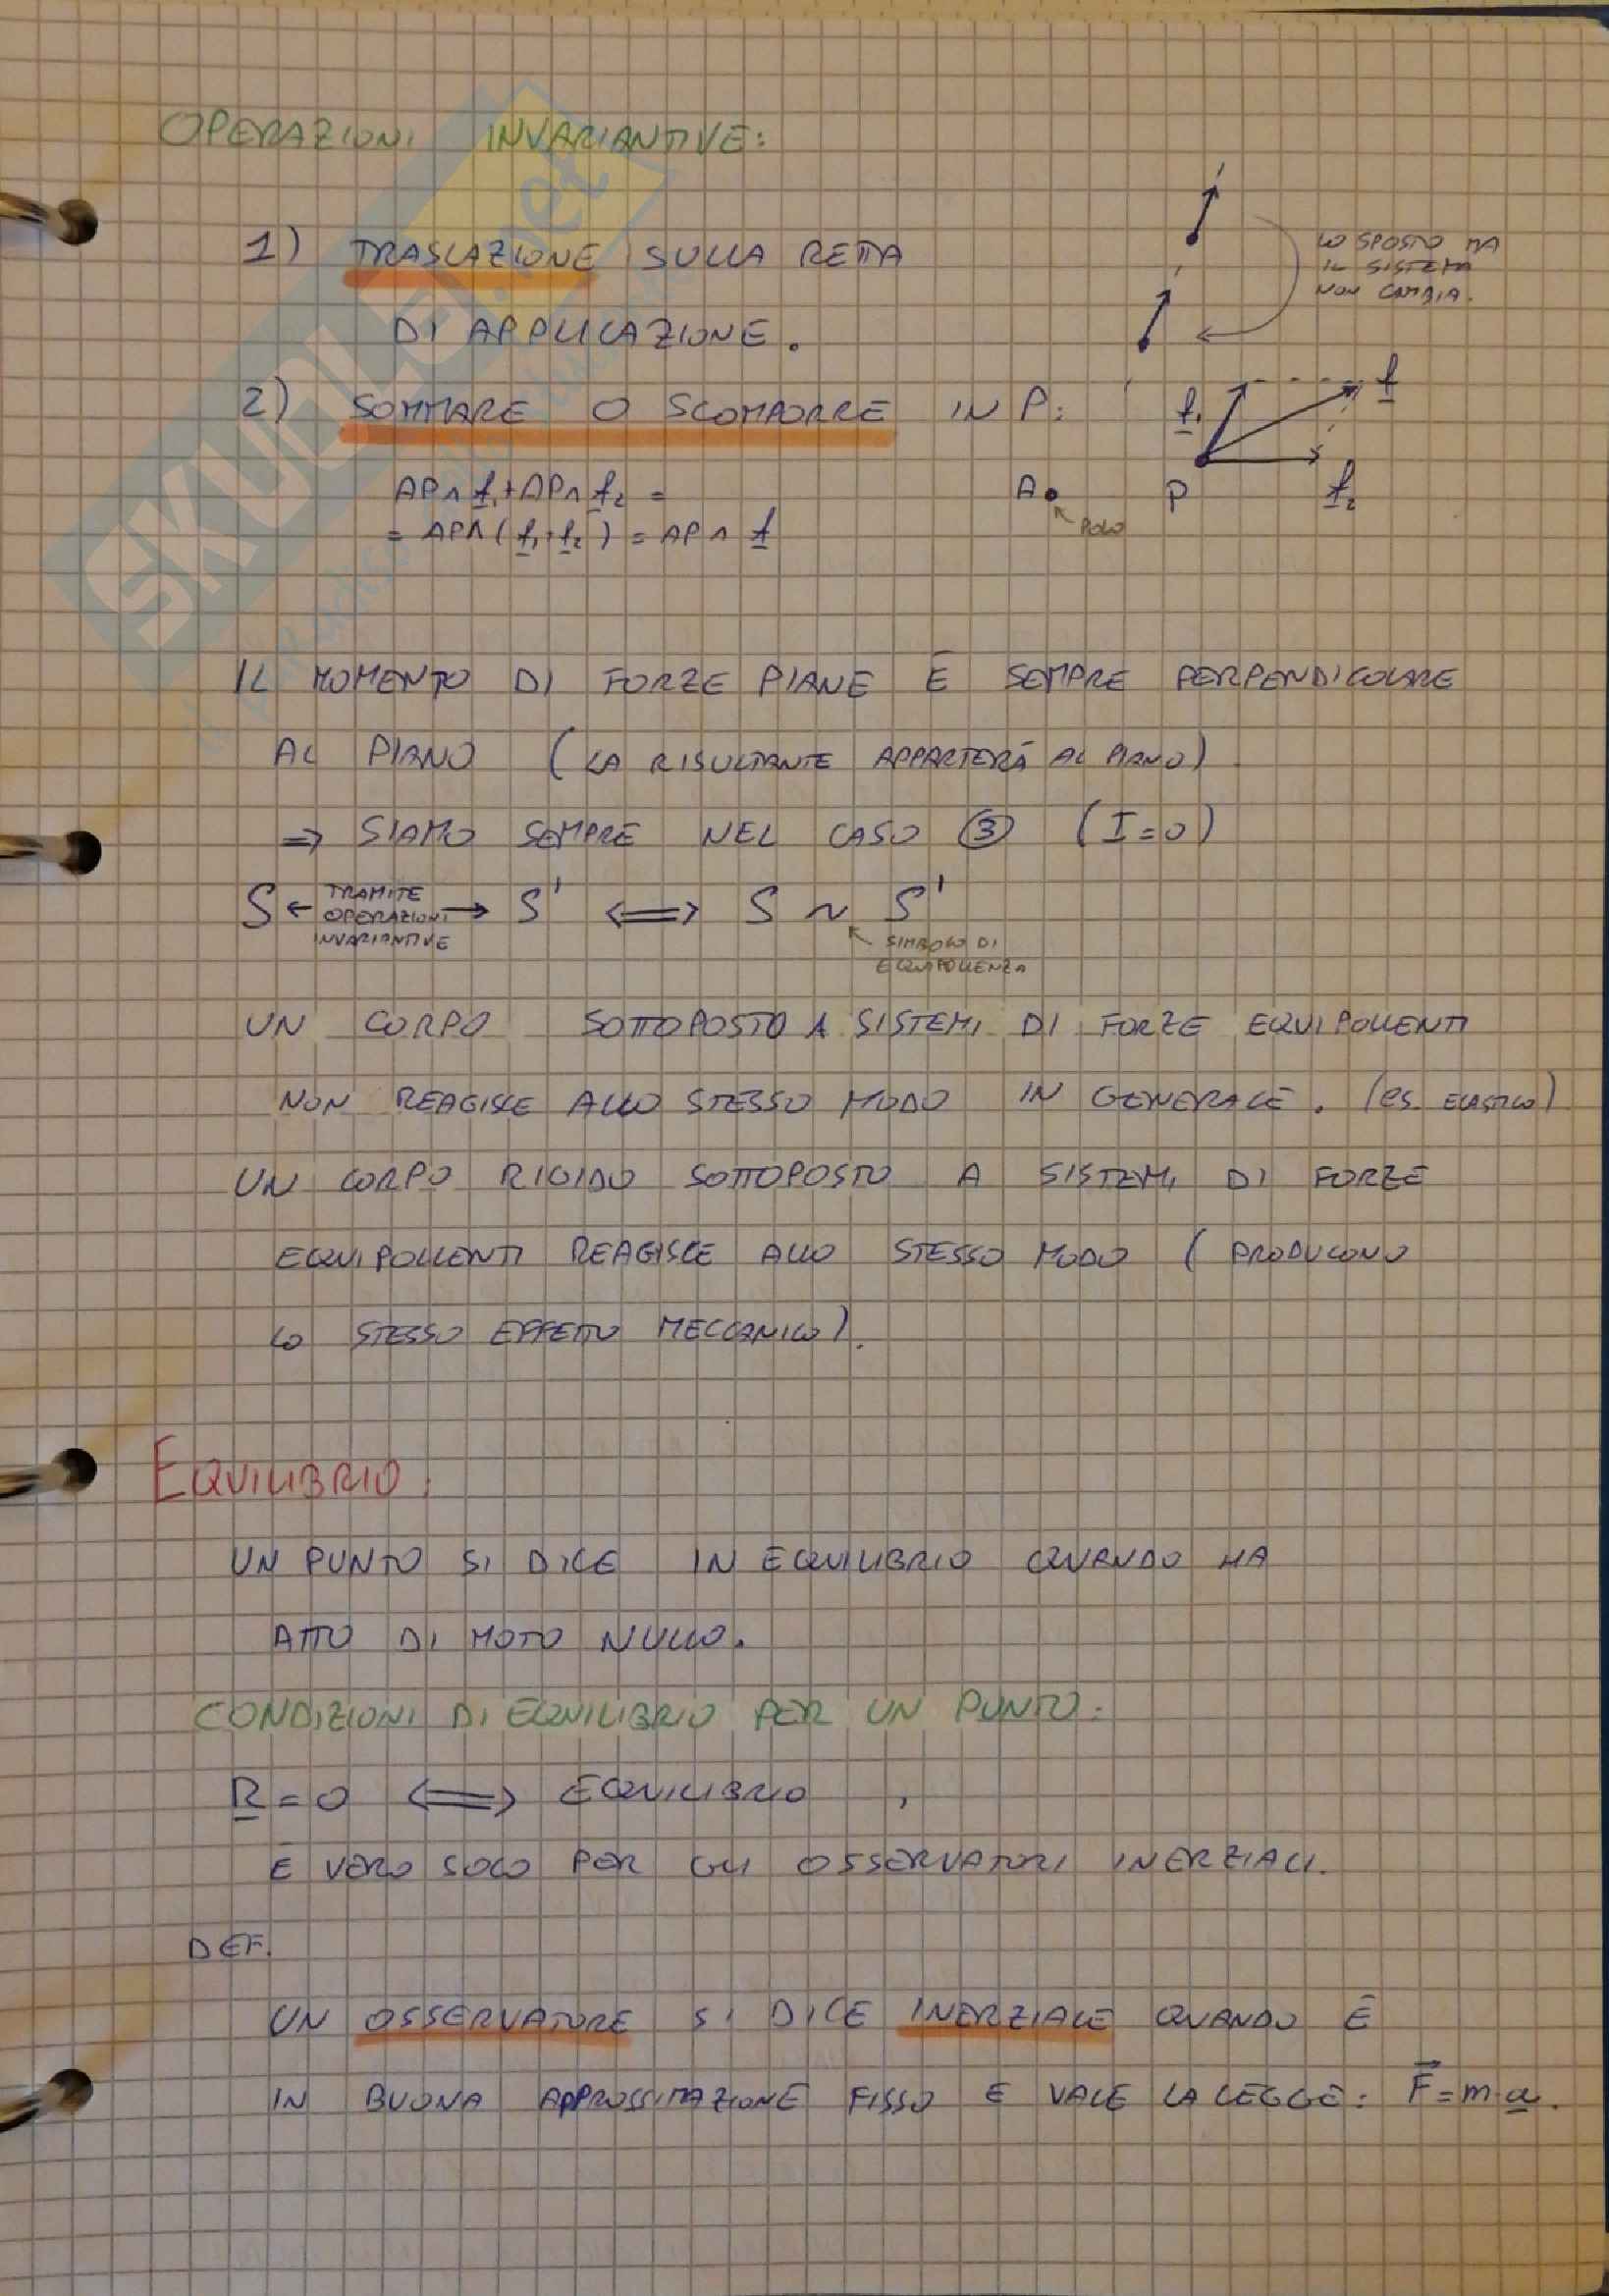 OPERAZIONI INVARIANTIVE:
1) TRASLAZIONE SULLA RETTA
DI APPLICAZIONE.
LO SPOSTO MA
IL SISTEMA
NON CAMBIA.
2) SOMMARE O SCOMPORRE IN P:
f₁
f
AP∧f₁+AP∧f₂ =
= AP∧(f₁+f₂) = AP∧f
A
POLO
P
f₂
IL MOMENTO DI FORZE PIANE È SEMPRE PERPENDICOLARE
AL PIANO (LA RISULTANTE APPARTERÀ AL PIANO)
⇒ SIAMO SEMPRE NEL CASO ③ (I=0)
S ← TRAMITE OPERAZIONI INVARIANTIVE → S' ⟺ S ~ S'
SIMBOLO DI
EQUIPOLLENZA
UN CORPO SOTTOPOSTO A SISTEMI DI FORZE EQUIPOLLENTI
NON REAGISCE ALLO STESSO MODO IN GENERALE. (ES. ELASTICO)
UN CORPO RIGIDO SOTTOPOSTO A SISTEMI DI FORZE
EQUIPOLLENTI REAGISCE ALLO STESSO MODO (PRODUCONO
LO STESSO EFFETTO MECCANICO).
EQUILIBRIO:
UN PUNTO SI DICE IN EQUILIBRIO QUANDO HA
ATTO DI MOTO NULLO.
CONDIZIONI DI EQUILIBRIO PER UN PUNTO:
R=0 ⟺ EQUILIBRIO ,
È VERO SOLO PER GLI OSSERVATORI INERZIALI.
DEF.
UN OSSERVATORE SI DICE INERZIALE QUANDO È
IN BUONA APPROSSIMAZIONE FISSO E VALE LA LEGGE: F⃗=m·a.
SKUOLA.net